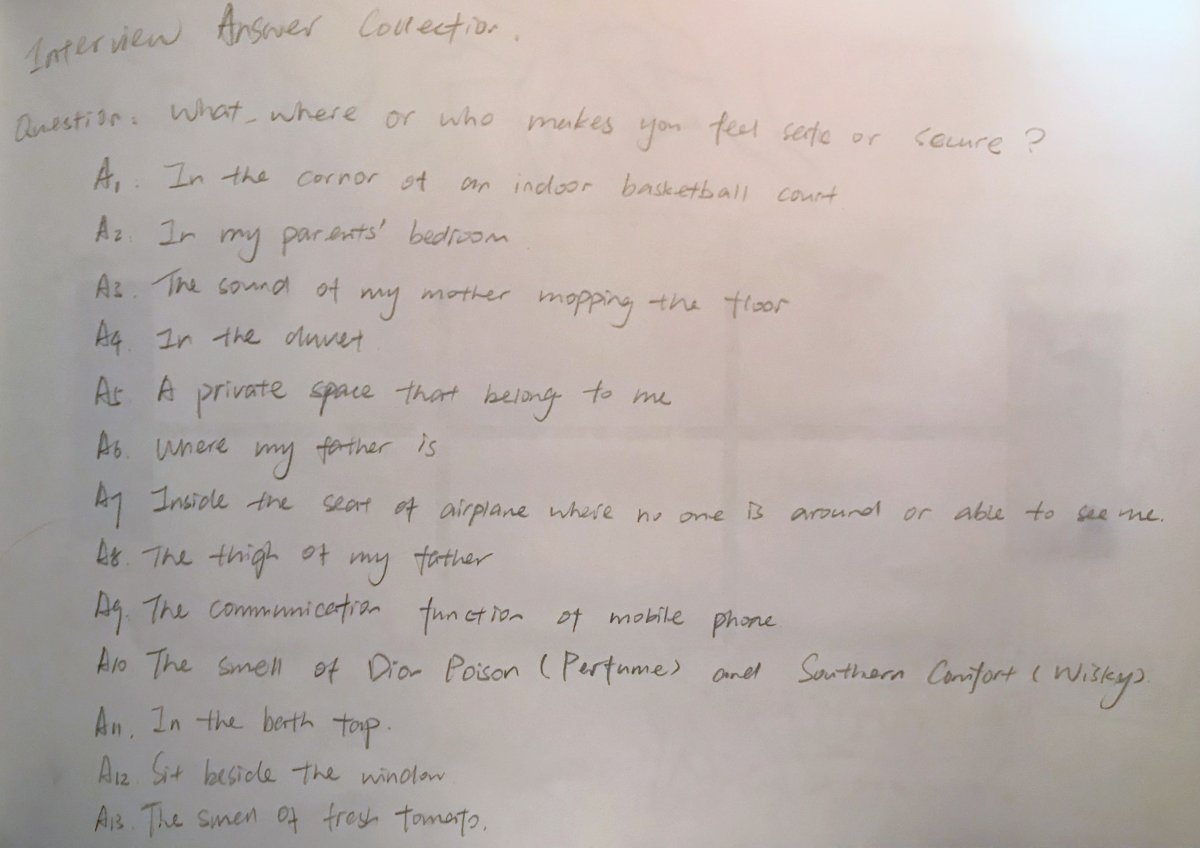 Interview Answer Collection.
Question: What, where or who makes you feel safe or secure?
A1. In the cornor of an indoor basketball court
A2. In my parents' bedroom
A3. The sound of my mother mopping the floor
A4. In the duvet
A5 A private space that belong to me
A6. Where my father is
A7 Inside the seat of airplane where no one is around or able to see me.
A8. The thigh of my father
A9. The communication function of mobile phone
A10 The smell of Dior Poison (Perfume) and Southern Comfort (Wisky)
A11. In the bath tap.
A12. Sit beside the window
A13. The smell of fresh tomato.